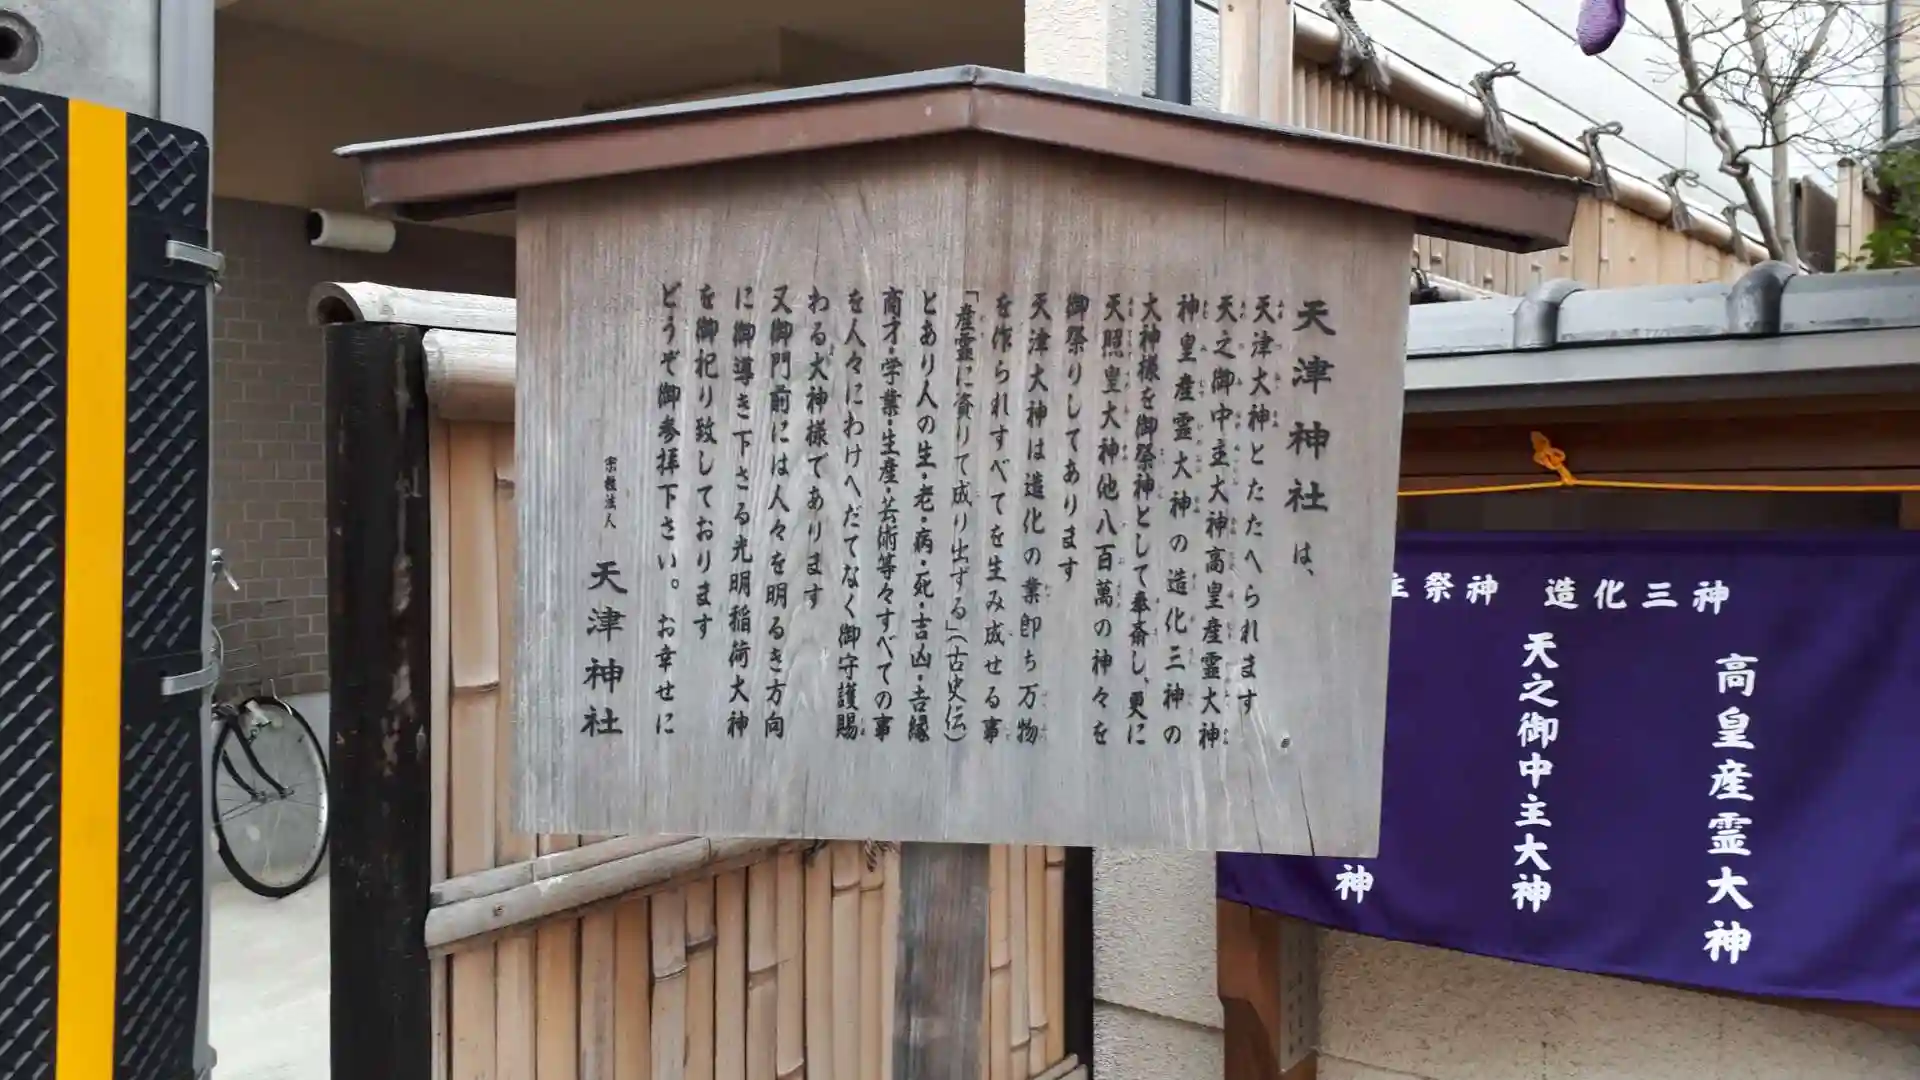 天津神社は、
天津大神とたたへられます
天之御中主大神高皇産霊大神
神皇産霊大神の造化三神の
大神様を御祭神として奉斎し、更に
天照皇大神他八百萬の神々を
御祭りしてあります
天津大神は造化の業即ち万物
を作られすべてを生み成せる事
「産霊に資りて成り出ずる」(古史伝)
とあり人の生・老・病・死・吉凶・吉縁
商才・学業・生産・芸術等々すべての事
を人々にわけへだてなく御守護賜
わる大神様であります
又御門前には人々を明るき方向
に御導き下さる光明稲荷大神
を御祀り致しております
どうぞ御参拝下さい。お幸せに
宗教法人 天津神社
主祭神 造化三神
高皇産霊大神
天之御中主大神
神